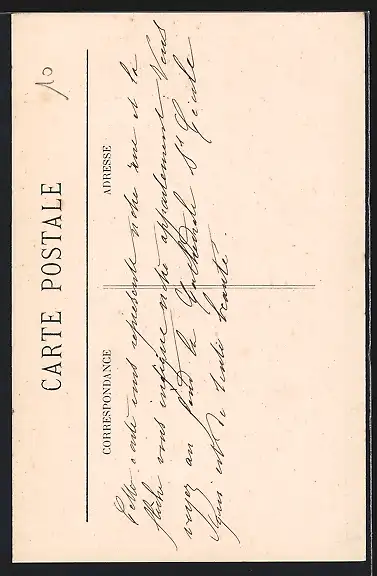 10
CARTE POSTALE
CORRESPONDANCE
ADRESSE
Cette carte vous représente notre rue et la
flèche vous indique notre appartement. Vous
voyez au fond la Cathédrale Ste Cécile
qui est de toute beauté.